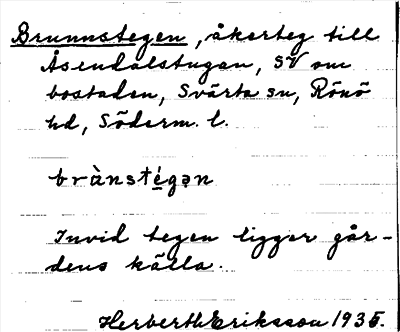 Brunnstegen, åkerteg till
Åsendalstugan, SV om
bostaden, Svärta sn, Rönö
hd, Söderm. l.
brànstégan
Invid tegen ligger går-
dens källa.
Herbert Eriksson 1935.